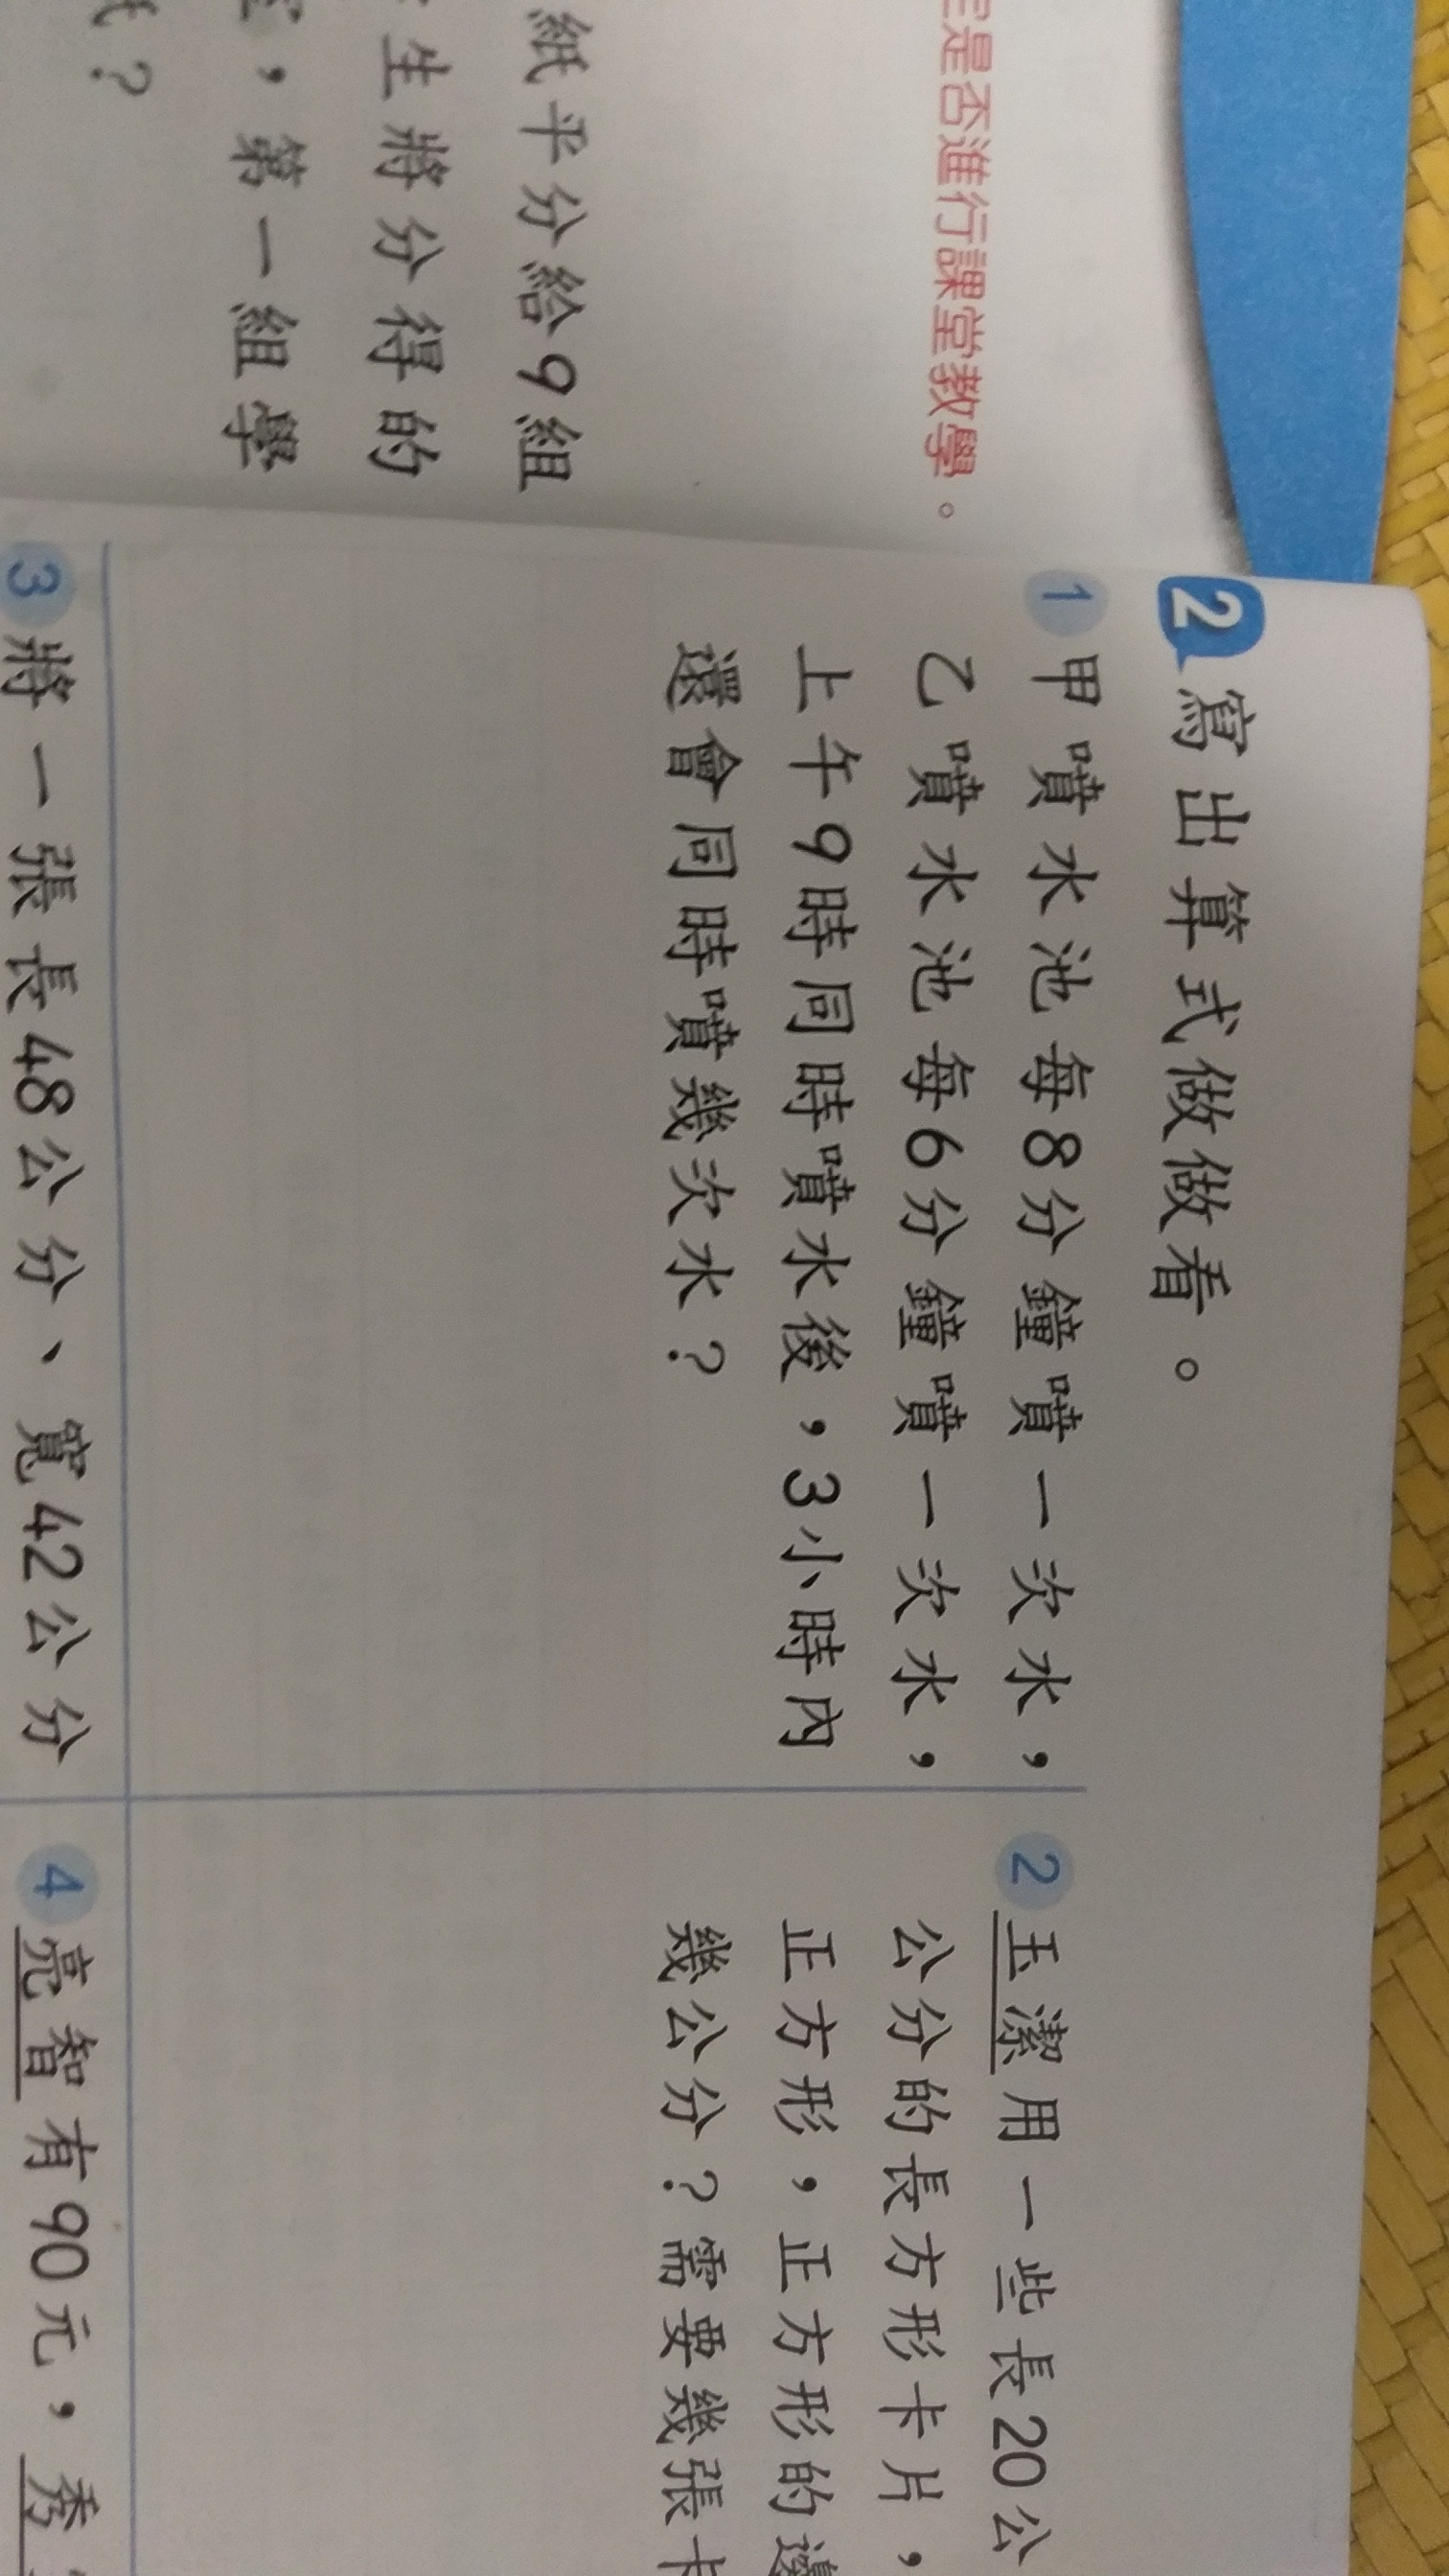 是否進行課堂教學。
紙平分給9組
生將分得的
，第一組學
？
2 寫出算式做做看。
1 甲噴水池每8分鐘噴一次水，
乙噴水池每6分鐘噴一次水，
上午9時同時噴水後，3小時內
還會同時噴幾次水？
2 玉潔用一些長20公
公分的長方形卡片，
正方形，正方形的邊
幾公分？需要幾張卡
3 將一張長48公分、寬42公分
4 亮智有90元，秀